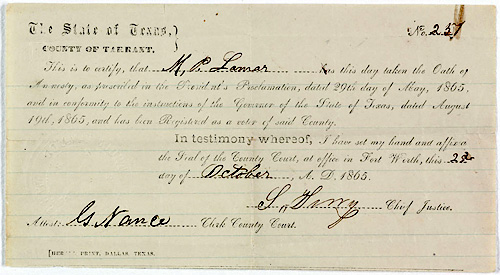 The State of Texas,
COUNTY OF TARRANT.
No. 257
This is to certify, that M. B. Lamar has this day taken the Oath of
Amnesty, as presented in the President's Proclamation, dated 29th day of May, 1865,
and in conformity to the instructions of the Governor of the State of Texas, dated August
19th, 1865, and has been Registered as a voter of said County.
In testimony whereof, I have set my hand and affix
the Seal of the County Court, at office in Fort Worth, this
day of October, A. D. 1865.
Chief Justice.
Attest: G Nance Clerk County Court.
PRINT, DALLAS, TEXAS.